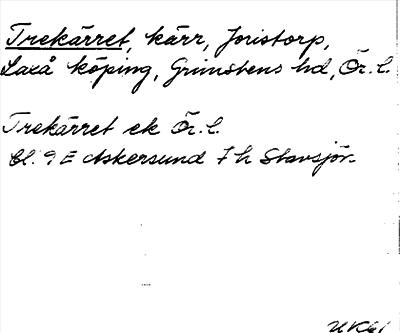 Trekärret, kärr, Joristorp,
Laxå köping, Grimstens hd, Ör. l.
Trekärret ek Ör. l.
Bl. 9 E Askersund 7 h Stavsjön